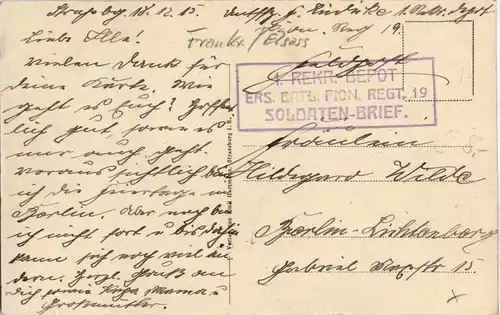 Straßbg. 18.12.15.
Liebe Else!
Vielen Dank für
Deine Karte. Wie
geht es Euch? Hoffent-
lich gut, sowie es
mir auch geht.
Voraussichtlich bin
ich die Feiertage in
Berlin. Aber noch bin
ich nicht fort u. bis dahin
kann sich noch viel än-
dern. Herzl. Gruß an
Dich sowie Mama u
Großmutter.
Rekr. Depot
Pion. Regt 19.
Frankr./Elsass
Feldpost
1. REKR. DEPOT
ERS. BATL. PION. REGT. 19
SOLDATEN-BRIEF.
Fräulein
Hildegard Wilde
Berlin-Lichtenberg
Gabriel Maxstr 15